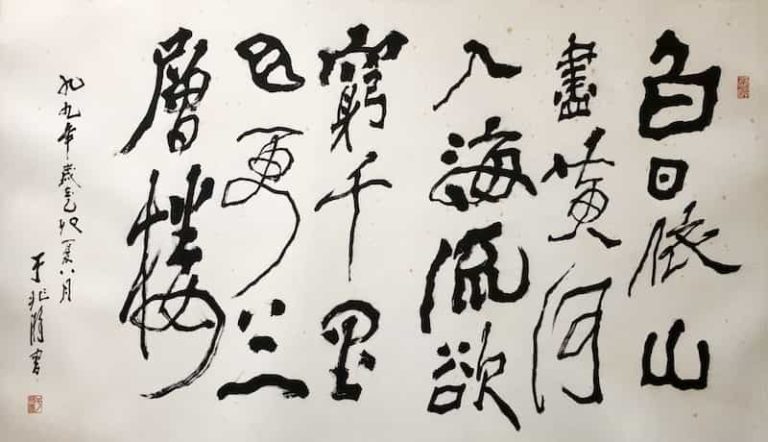 白日依山
盡黃河
入海流欲
窮千里
目更上一
層樓
九九年歲己卯夏八月
于兆書